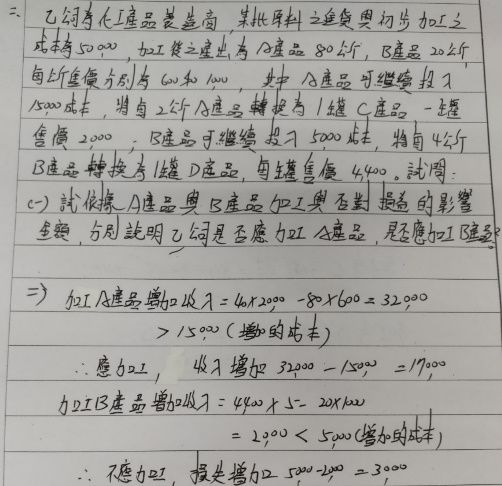 二、 乙公司為化工產品製造商，某批原料之進貨與初步加工之
成本為50,000，加工後之產出為A產品80公斤，B產品20公斤，
每公斤售價分別為600和1,000，其中A產品可繼續投入
15,000成本，將每2公斤A產品轉換為1罐C產品，一罐
售價2,000；B產品可繼續投入5,000成本，將每4公斤
B產品轉換為1罐D產品，每罐售價4,400。試問：
(一) 試依據A產品與B產品加工與否對損益的影響
金額，分別說明乙公司是否應加工A產品，是否應加工B產品？
⇒) 加工A產品增加收入=40×2000-80×600=32,000
>15,000(增加的成本)
∴應加工， 收入增加 32,000-15,000=17,000
加工B產品增加收入=4400×5-20×1000
=2,000<5,000(增加的成本)
∴不應加工，損失增加 5,000-2,000=3,000